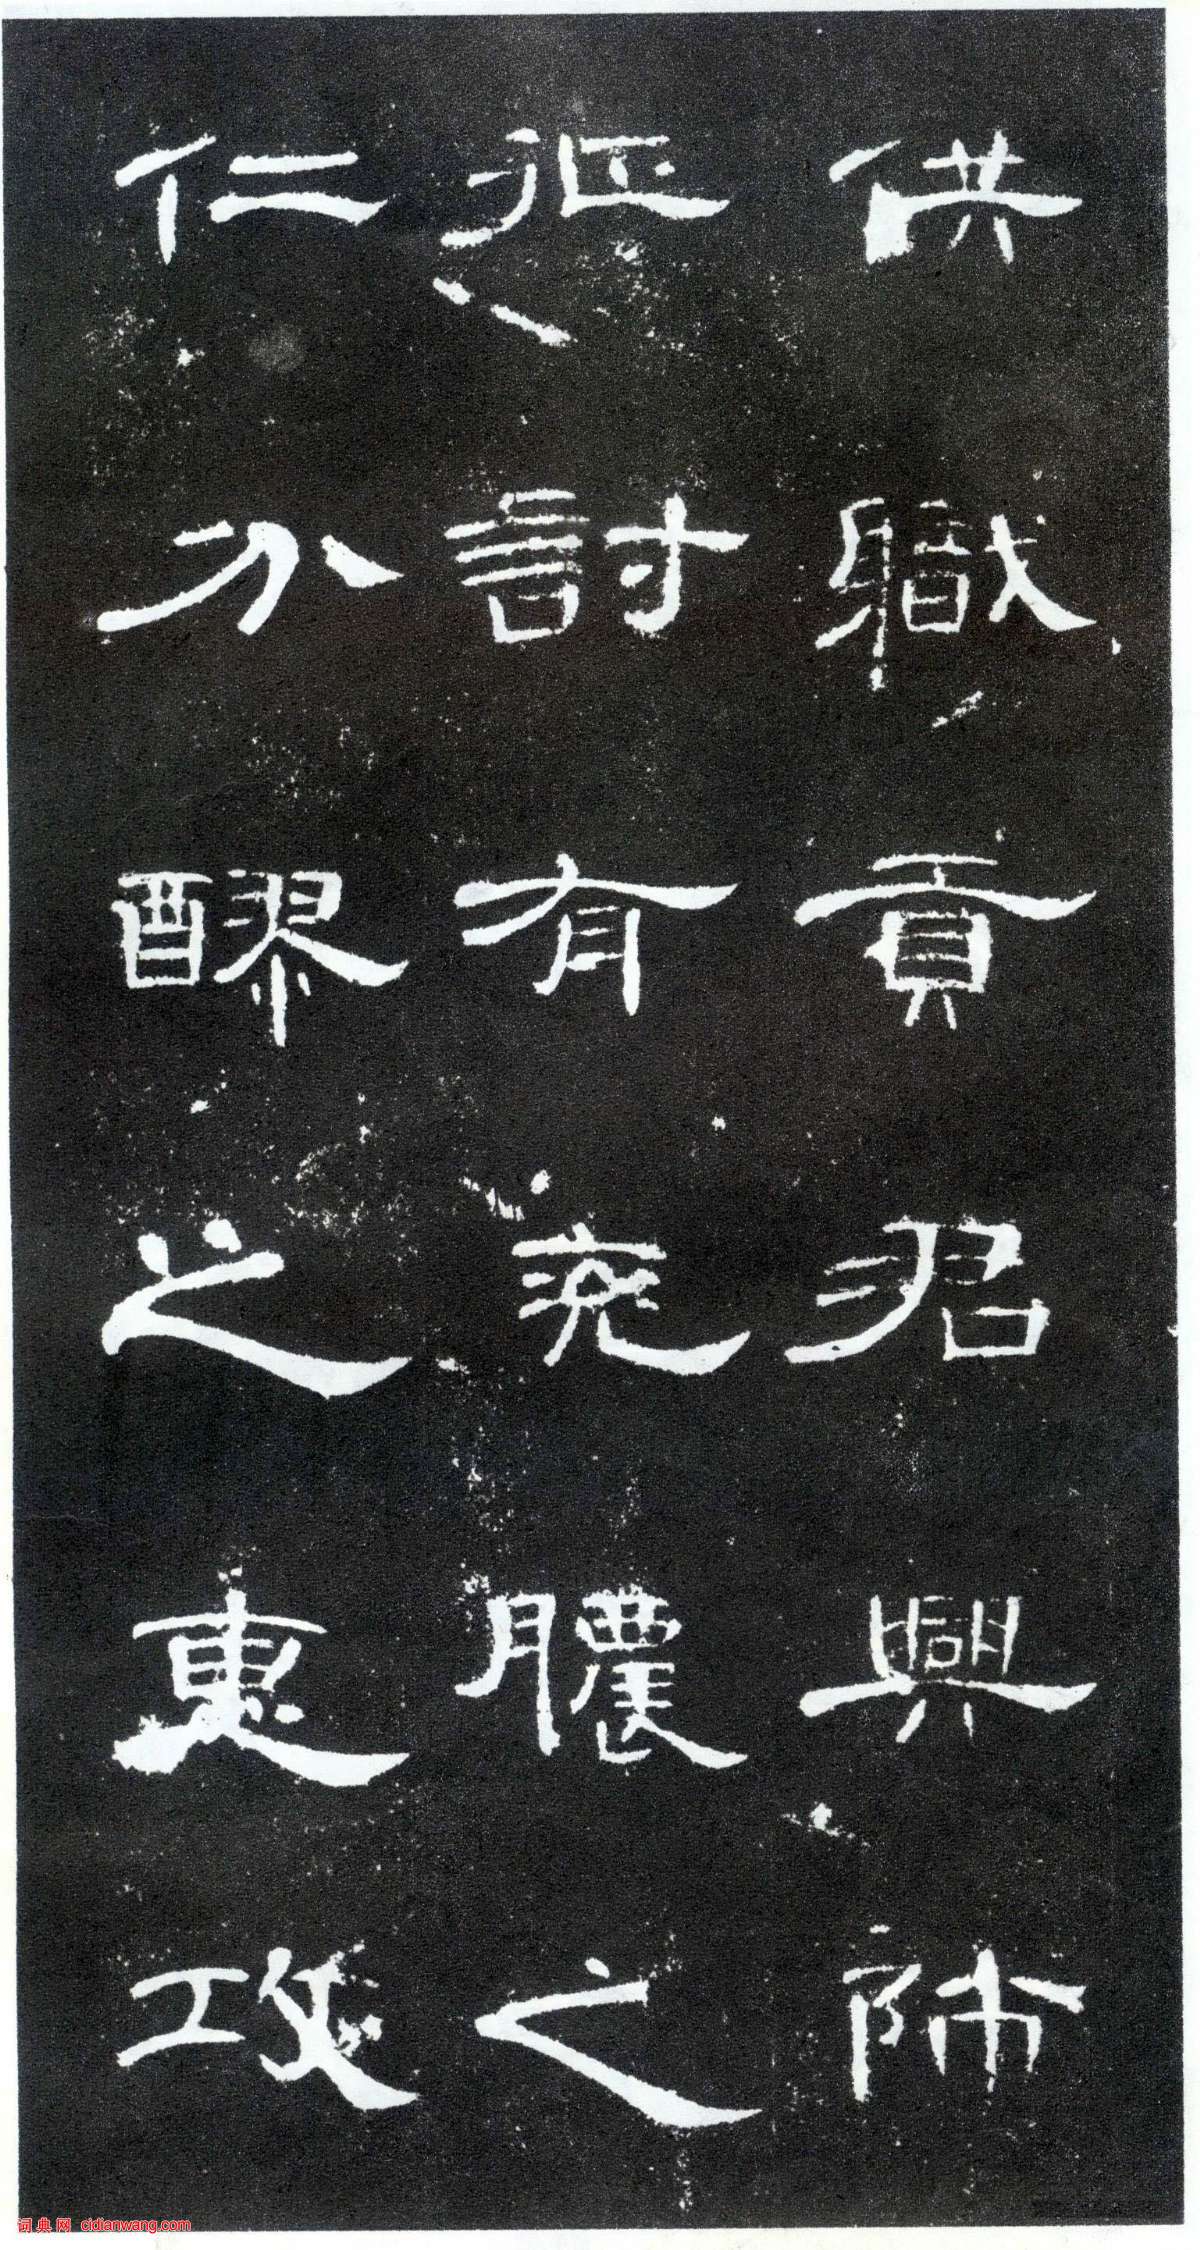 供職貢君興師
征討有兖膿之
仁分醪之惠攻
词典网 cidianwang.com